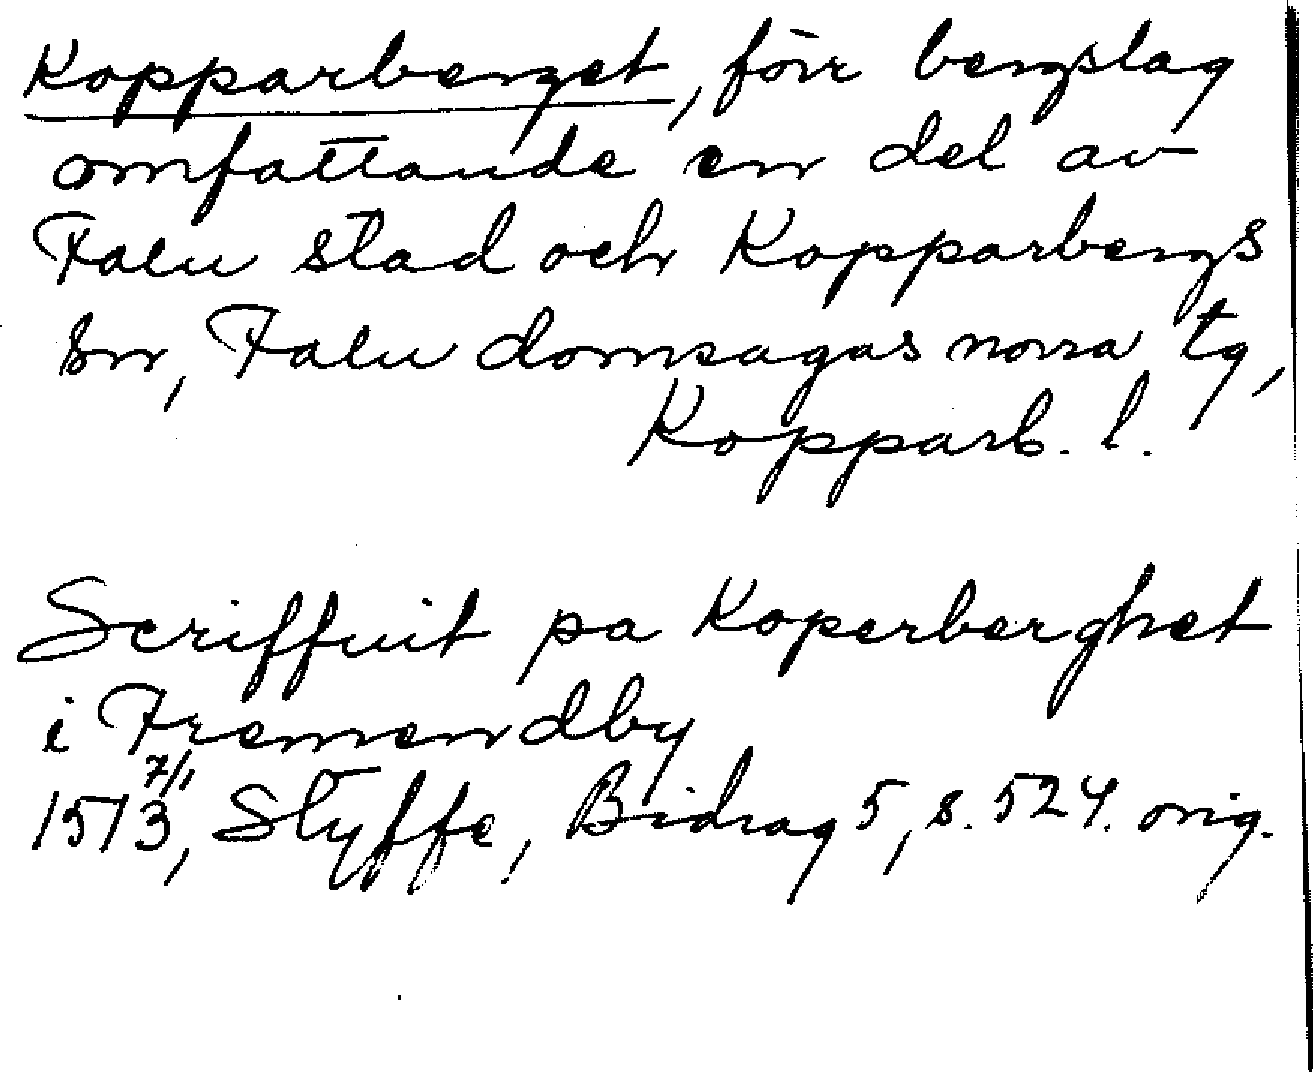 Kopparberget, förr bergslag
omfattande en del av
Falu stad och Kopparbergs
sn, Falu domsagas norra tg,
Kopparb. l.
Scriffuit pa Koperberghet
i Fremendby
7/1
1513, Styffe, Bidrag 5, s. 524. orig.